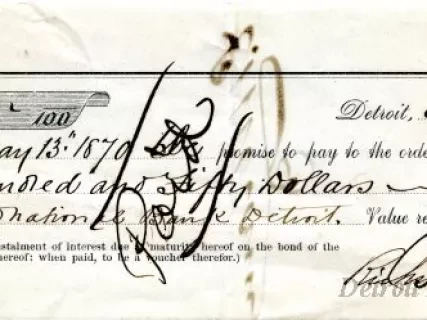 100
Detroit,
ay 13th 1870 promise to pay to the orde
ndred and Fifty Dollars
National Bank Detroit. Value re
stalment of interest due at maturity hereof on the bond of the
hereof: when paid, to be a voucher therefor.)
Detroit